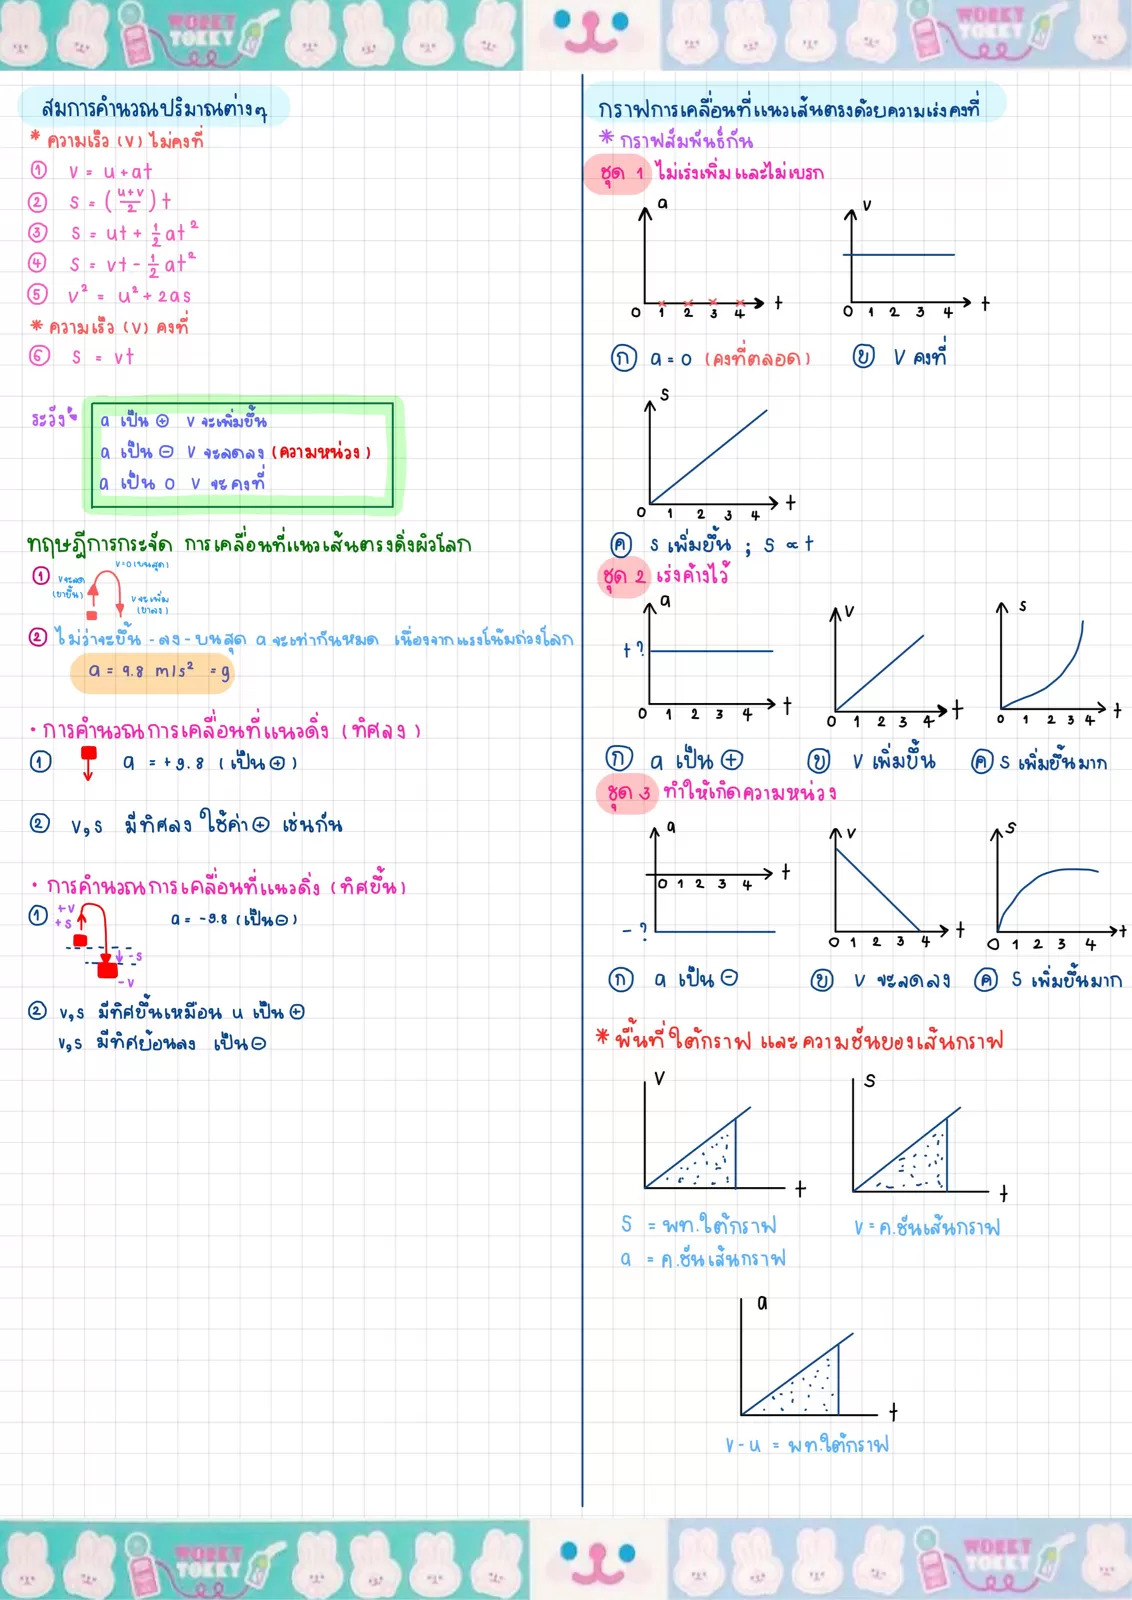 WORKY
TOKKY
WORKY
TOKKY
สมการคำนวณปริมาณต่างๆ
* ความเร็ว (v) ไม่คงที่
① v = u+at
② s = (u+v/2) t
③ s = ut + 1/2 at²
④ s = vt - 1/2 at²
⑤ v² = u² + 2as
* ความเร็ว (v) คงที่
⑥ s = vt
ระวัง
a เป็น ⊕ v จะเพิ่มขึ้น
a เป็น ⊖ v จะลดลง (ความหน่วง)
a เป็น 0 v จะคงที่
ทฤษฎีการกระจัด การเคลื่อนที่แนวเส้นตรงดิ่งผิวโลก
① v=0 (บนสุด)
v จะลด
(ขาขึ้น)
v จะเพิ่ม
(ขาลง)
② ไม่ว่าจะขึ้น - ลง - บนสุด a จะเท่ากันหมด เนื่องจากแรงโน้มถ่วงโลก
a = 9.8 m/s² = g
· การคำนวณการเคลื่อนที่แนวดิ่ง (ทิศลง)
① a = +9.8 (เป็น ⊕)
② v,s มีทิศลง ใช้ค่า ⊕ เช่นกัน
· การคำนวณการเคลื่อนที่แนวดิ่ง (ทิศขึ้น)
① +v
+s
a = -9.8 (เป็น ⊖)
-s
-v
② v,s มีทิศขึ้นเหมือน u เป็น ⊕
v,s มีทิศย้อนลง เป็น ⊖
กราฟการเคลื่อนที่แนวเส้นตรงด้วยความเร่งคงที่
* กราฟสัมพันธ์กัน
ชุด 1 ไม่เร่งเพิ่มและไม่เบรก
a
t
0 1 2 3 4
v
t
0 1 2 3 4
ก a = 0 (คงที่ตลอด)
ข v คงที่
s
t
0 1 2 3 4
ค s เพิ่มขึ้น ; s ∝ t
ชุด 2 เร่งค้างไว้
a
+?
t
0 1 2 3 4
v
t
0 1 2 3 4
s
t
0 1 2 3 4
ก a เป็น ⊕
ข v เพิ่มขึ้น
ค s เพิ่มขึ้นมาก
ชุด 3 ทำให้เกิดความหน่วง
a
t
0 1 2 3 4
-?
v
t
0 1 2 3 4
s
t
0 1 2 3 4
ก a เป็น ⊖
ข v จะลดลง
ค s เพิ่มขึ้นมาก
* พื้นที่ใต้กราฟ และ ความชันของเส้นกราฟ
v
t
s
t
s = พท.ใต้กราฟ
a = ค.ชันเส้นกราฟ
v = ค.ชันเส้นกราฟ
a
t
v-u = พท.ใต้กราฟ
WORKY
TOKKY
WORKY
TOKKY